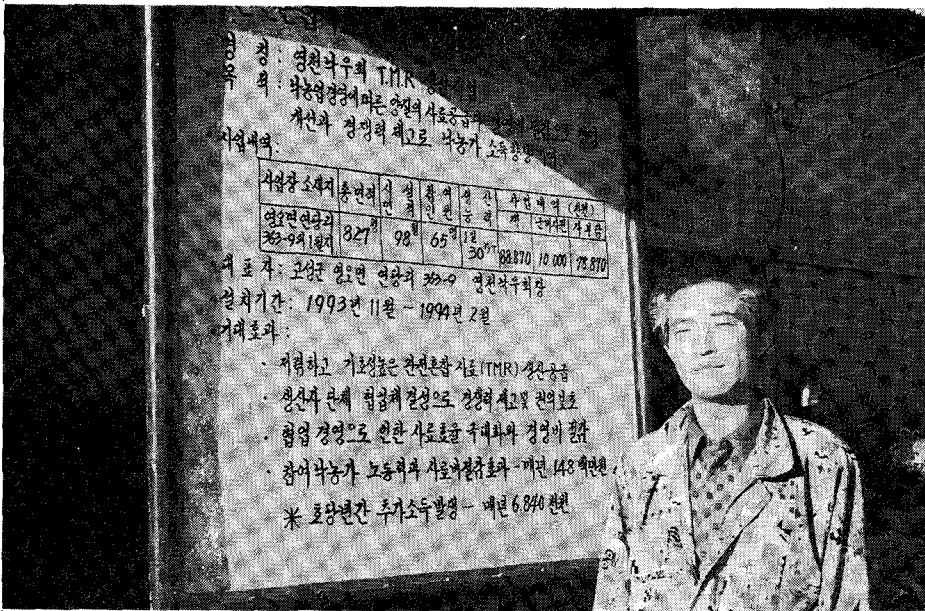 명 칭 : 영천낙우회 TMR
목 적 : 낙농업경영에 따른 양질의 사료공급과
개선과 경쟁력 제고로 낙농가 소득향상
사업내역 :
사업장 소재지 총면적 시설면적 참여인원 생산능력 사업내역 (천원)
계 군비지원 자부담
영오면 연당리 363-9외 1필지 827평 98평 65명 1일 30 88.870 10.000 78.870
대 표 자 : 고성군 영오면 연당리 363-9 영천낙우회장
설치기간 : 1993년 11월 - 1994년 2월
기대효과 :
· 저렴하고 기호성높은 완전혼합 사료(TMR) 생산공급
· 생산자 단체 협업체 결성으로 경쟁력 제고및 권익보호
· 협업 경영으로 인한 사료효율 극대화와 경영비 절감
· 참여낙농가 노동력과 사료비절감효과 - 매년 148백만원
※ 호당년간 추가소득발생 - 매년 6.840천원